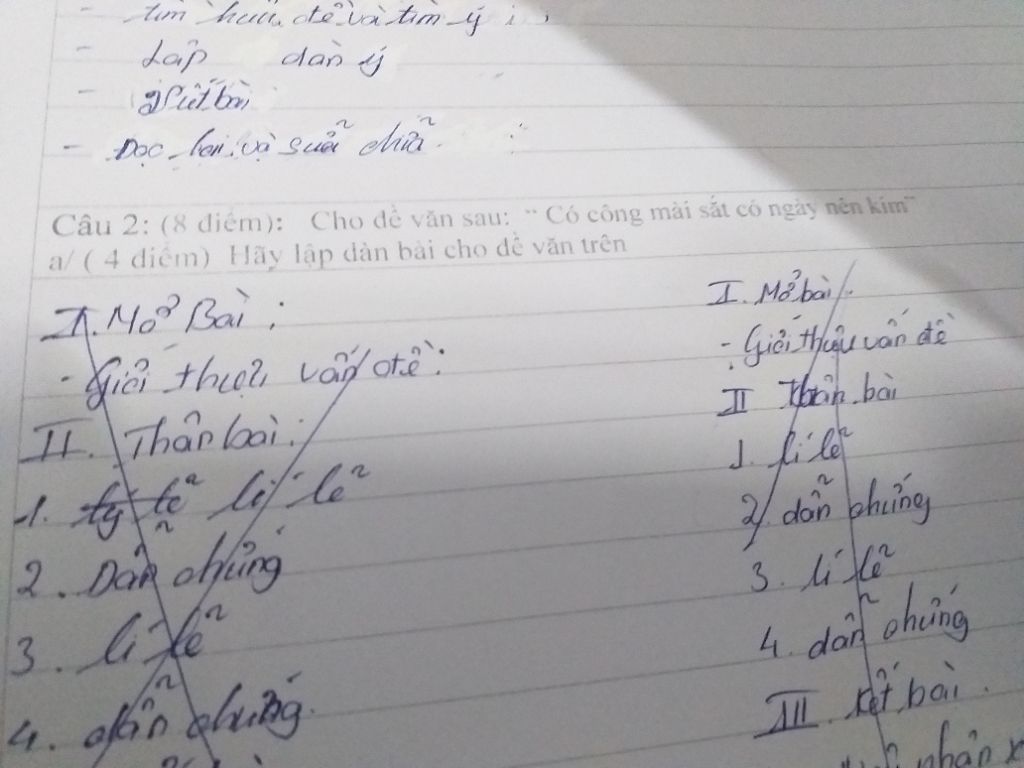 - tìm hiểu đề và tìm ý
- Lập dàn ý
- Viết bài
- Đọc lại và sửa chữa.
Câu 2: (8 điểm): Cho đề văn sau: “ Có công mài sắt có ngày nên kim”
a/ ( 4 điểm) Hãy lập dàn bài cho đề văn trên
I. Mở Bài :
- Giới thiệu vấn đề:
II. Thân bài:
1. lý lẽ lí lẽ
2. Dẫn chứng
3. lí lẽ
4. dẫn chứng.
I. Mở bài.
- Giới thiệu vấn đề
II Thân bài
1. lí lẽ
2. dẫn chứng
3. lí lẽ
4. dẫn chứng
III. kết bài.
nhận